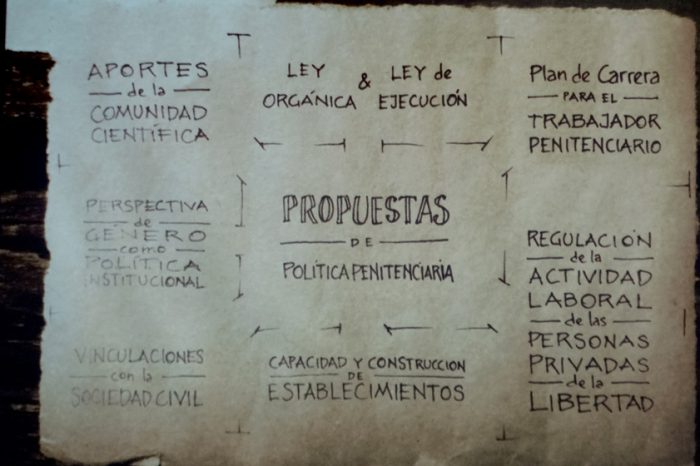 APORTES
de la
COMUNIDAD
CIENTÍFICA
LEY ORGÁNICA
&
LEY de EJECUCIÓN
Plan de Carrera
PARA EL
TRABAJADOR
PENITENCIARIO
PERSPECTIVA
de
GÉNERO
como
POLÍTICA
INSTITUCIONAL
PROPUESTAS
DE
POLÍTICA PENITENCIARIA
REGULACIÓN
de la
ACTIVIDAD
LABORAL
de las
PERSONAS
PRIVADAS
de la
LIBERTAD
VINCULACIONES
con la
SOCIEDAD CIVIL
CAPACIDAD Y CONSTRUCCIÓN
DE
ESTABLECIMIENTOS